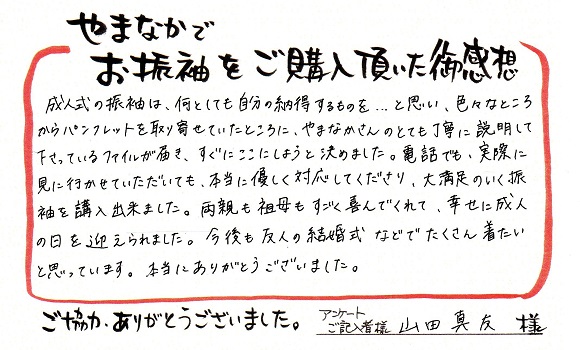 やまなかで
お振袖をご購入頂いた御感想
成人式の振袖は、何としても自分の納得するものを…と思い、色々なところ
からパンフレットを取り寄せていたところに、やまなかさんのとても丁寧に説明して
下さっているファイルが届き、すぐにここにしようと決めました。電話でも、実際に
見に行かせていただいても、本当に優しく対応してくださり、大満足のいく振
袖を購入出来ました。両親も祖母もすごく喜んでくれて、幸せに成人
の日を迎えられました。今後も友人の結婚式などでたくさん着たい
と思っています。本当にありがとうございました。
ご協力、ありがとうございました。
アンケート
ご記入者様 山田真友 様